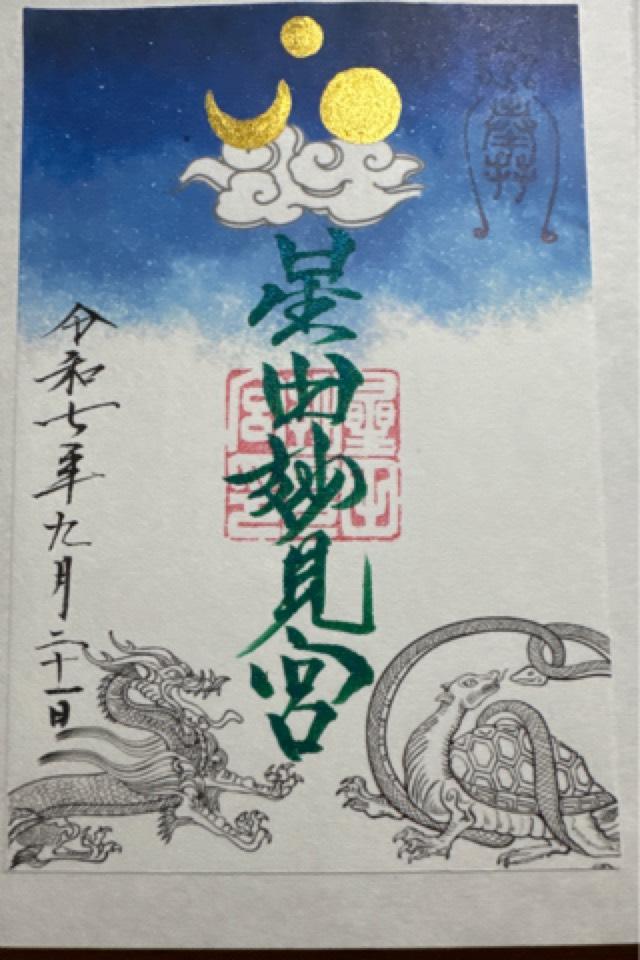 奉拝
星田妙見宮
令和七年九月二十一日